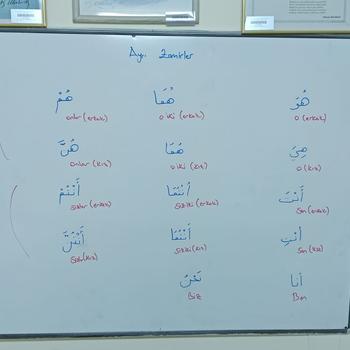 Ayrı Zamirler
هُوَ هُمَا هُمْ
onlar (erkek) o iki (erkek) o (erkek)
هِيَ هُمَا هُنَّ
onlar (kız) o iki (kız) o (kız)
أَنْتَ أَنْتُمَا أَنْتُمْ
sizler (erkek) siz iki (erkek) Sen (erkek)
أَنْتِ أَنْتُمَا أَنْتُنَّ
sizler (kız) siz iki (kız) Sen (kız)
أَنَا نَحْنُ
Biz Ben